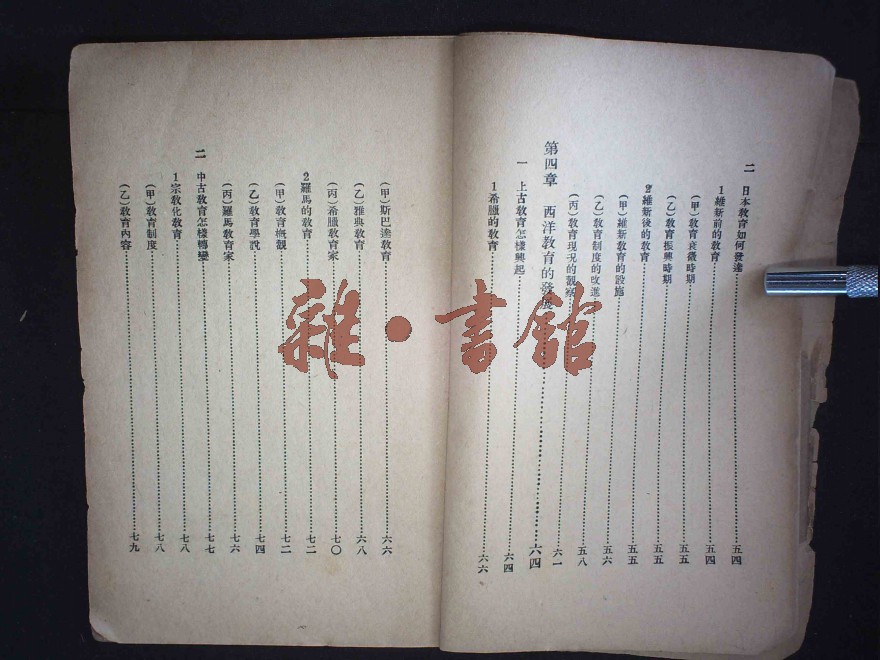 二 日本教育如何發達 五四
1 維新前的教育 五四
(甲)教育衰微時期 五五
(乙)教育振興時期 五五
2 維新後的教育 五五
(甲)維新教育的設施 五六
(乙)教育制度的改進 五八
(丙)教育現况的觀察 六一
第四章 西洋教育的發達 六四
一 上古教育怎樣興起 六四
1 希臘的教育 六六
(甲)斯巴達教育 六六
(乙)雅典教育 六八
(丙)希臘教育家 七〇
2 羅馬的教育 七二
(甲)教育概觀 七二
(乙)教育學說 七四
(丙)羅馬教育家 七六
二 中古教育怎樣轉變 七七
1 宗教化教育 七八
(甲)教育制度 七八
(乙)教育內容 七九
雜·書館